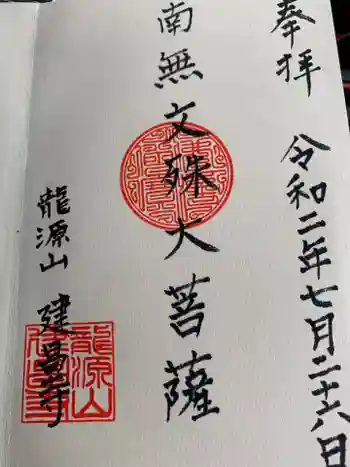 奉拝
令和二年七月二十六日
南無文殊大菩薩
龍源山 建昌寺
龍源山